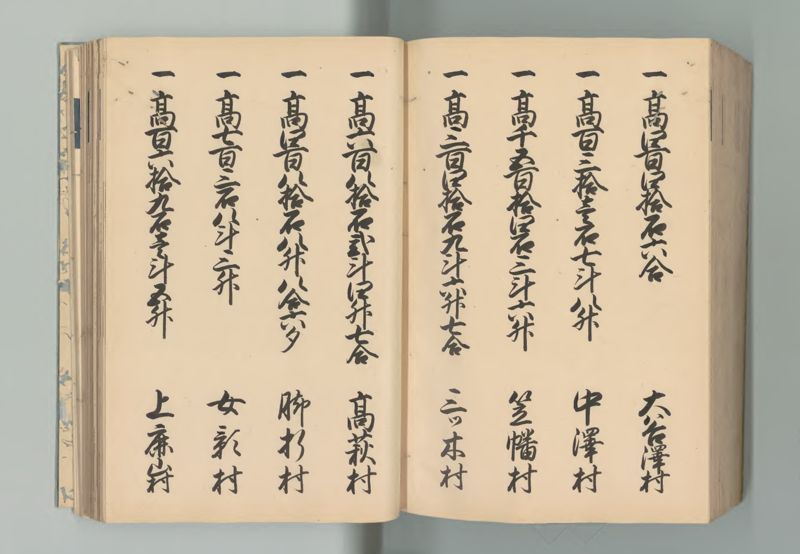 一 高四百四拾石六合 大谷澤村
一 高百三拾壱石七斗八升 中澤村
一 高千五百拾四石三斗六升 笠幡村
一 高三百四拾石九斗六升七合 三ツ木村
一 高六百八拾石弐斗四升七合 高萩村
一 高四百八拾石八升八合六夕 脚折村
一 高七百三石八斗三升 女影村
一 高百六拾九石壱斗五升 上鹿山村